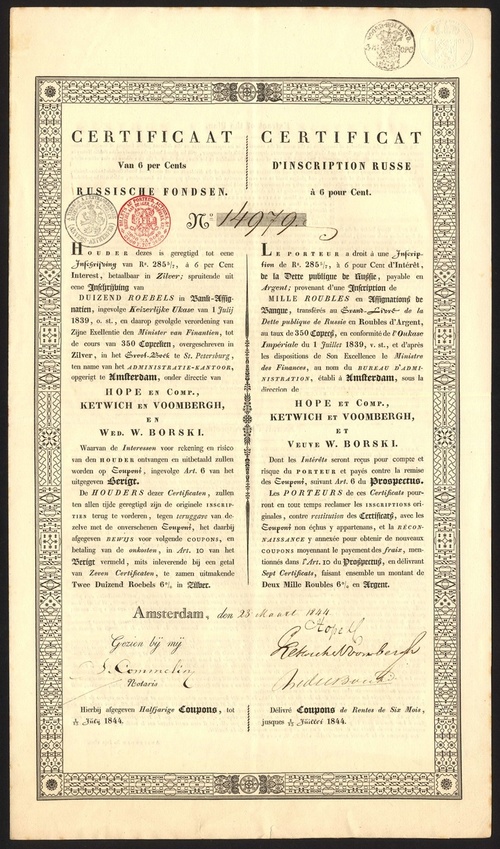 CERTIFICAAT
Van 6 per Cents
RUSSISCHE FONDSEN.
CERTIFICAT
D'INSCRIPTION RUSSE
à 6 pour Cent.
No. 14979.
HOUDER dezes is geregtigd tot eene
Inschrijving van Rs. 285 5/7, à 6 per Cent
Interest, betaalbaar in Zilver; spruitende uit
eene Inschrijving van
DUIZEND ROEBELS in Bank-Assig-
natien, ingevolge Keizerlijke Ukase van 1 Julij
1839, o. st., en daarop gevolgde verordening van
Zijne Exellentie den Minister van Finantien, tot
de cours van 350 Copecken, overgeschreven in
Zilver, in het Groot-Boek te St. Petersburg,
ten name van het ADMINISTRATIE-KANTOOR,
opgerigt te Amsterdam, onder directie van
HOPE EN COMP.,
KETWICH EN VOOMBERGH,
EN
WED. W. BORSKI.
Waarvan de Interessen voor rekening en risico
van den HOUDER ontvangen en uitbetaald zullen
worden op Couponi, ingevolge Art. 6 van het
uitgegeven Berigt.
De HOUDERS dezer Certificaten, zullen
ten allen tijde geregtigd zijn de originele INSCRIP-
TIEN terug te vorderen, tegen teruggave van de-
zelve met de onverschenen Couponi, het daarbij
afgegeven BEWIJS voor volgende COUPONS, en
betaling van de onkosten, in Art. 10 van het
Berigt vermeld, mits inleverende bij een getal
van Zeven Certificaten, te zamen uitmakende
Twee Duizend Roebels 6%, in Zilver.
LE PORTEUR a droit à une Inscrip-
tion de Rs. 285 5/7, à 6 pour Cent d'Intérêt,
de la Dette publique de Russie, payable en
Argent; provenant d'une Inscription de
MILLE ROUBLES en Assignations de
Banque, transférés au Grand-Livre de la
Dette publique de Russie en Roubles d'Argent,
au taux de 350 Copes, en conformité de l'Oukase
Impériale du 1 Juillet 1839, v. st., et d'après
les dispositions de Son Excellence le Ministre
des Finances, au nom du BUREAU D'ADMI-
NISTRATION, établi à Amsterdam, sous la
direction de
HOPE ET COMP.,
KETWICH ET VOOMBERGH,
ET
VEUVE W. BORSKI.
Dont les Intérêts seront reçus pour compte et
risque du PORTEUR et payés contre la remise
des Couponi, suivant Art. 6 du Prospectus.
Les PORTEURS de ces Certificats pour-
ront en tout temps reclamer les INSCRIPTIONS ori-
ginales, contre restitution des Certificats, avec les
Couponi non échus y appartenans, et la RECON-
NAISSANCE y annexée pour obtenir de nouveaux
COUPONS moyennant le payement des fraix, men-
tionnés dans l'Art. 10 du Prospectus, en délivrant
Sept Certificats, faisant ensemble un montant de
Deux Mille Roubles 6%, en Argent.
Amsterdam, den 25 Maart 1844.
Gezien bij mij
Notaris
Hope & Co
Ketwich & Voombergh
Wed. W. Borski
Hierbij afgegeven Halfjarige Coupons, tot
1/13 July 1844.
Délivré Coupons de Rentes de Six Mois,
jusques 1/13 Juillet 1844.